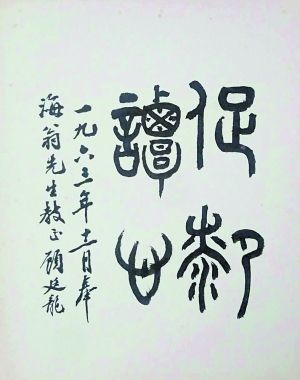 促厀
譚心
一九六三年十一月奉
海翁先生教正 顧廷龍